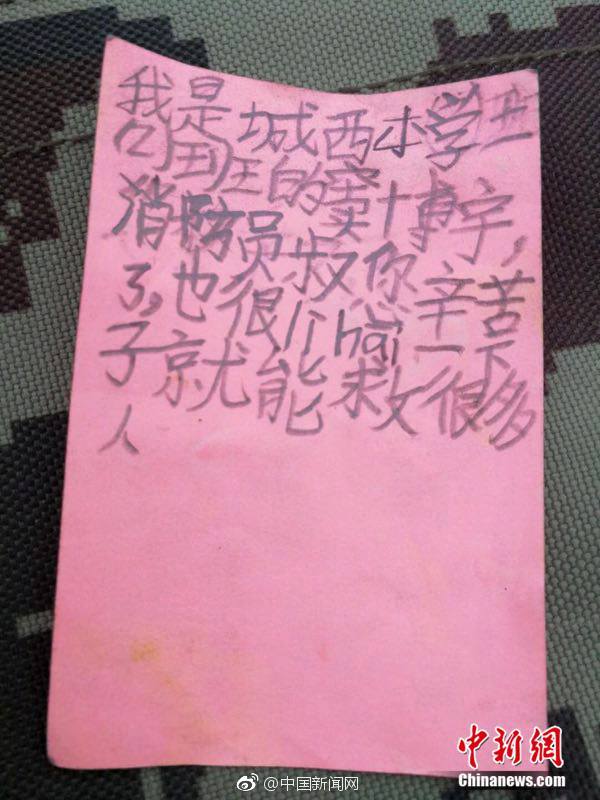 我是城西小学二
(1)班的窦博宇,
消防员叔你辛苦
了,也很hai一下
子就能救很多
人
中新网
Chinanews.com
@中国新闻网